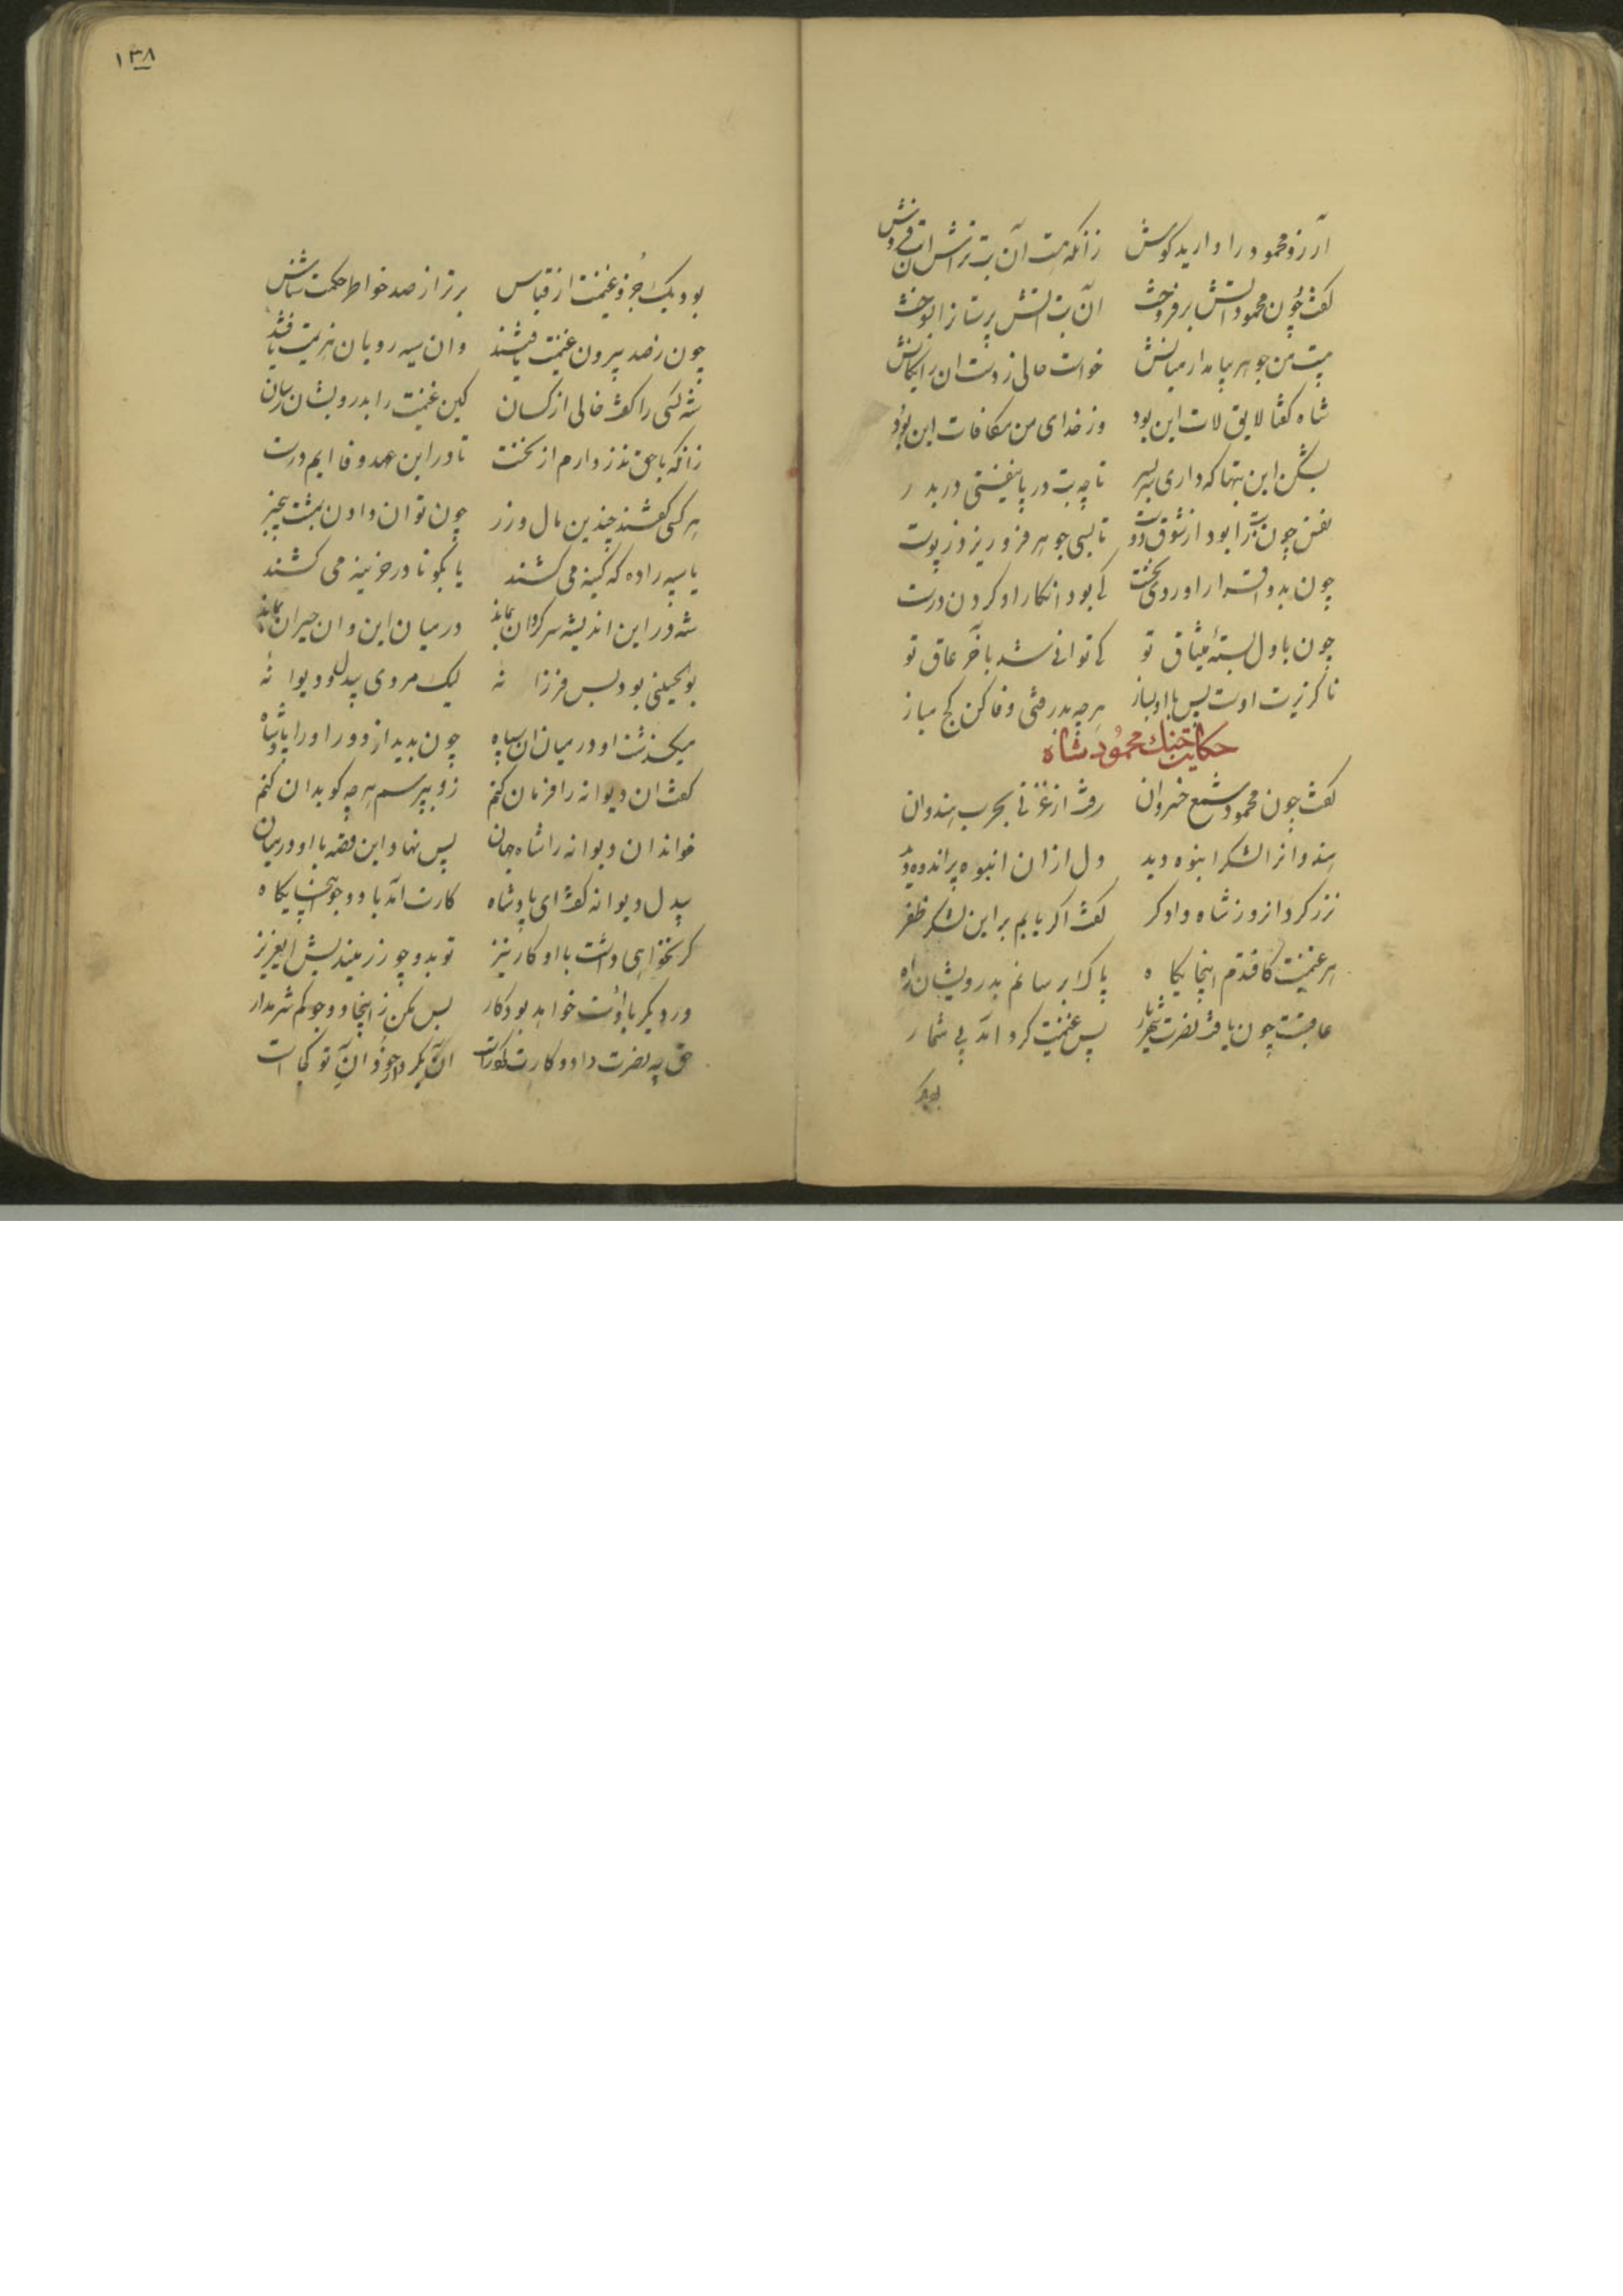 آزر و محمود را دارید گوش زانکه هست آن بت تراش این بت فروش
گفت چون محمود آتش برفروخت آن بت آتش پرستانرا بسوخت
بیست من جوهر بیامد از میانش خواست حالی ز دست آن رایکانش
شاه گفتا لایق لات این بود وز خدای من مکافات این بود
بشکن این بتها که داری سر بسر تا چو بت در پا نیفتی در بدر
نفس چون بت را بسوز از شوق دوست تا بسی جوهر فرو ریزد ز پوست
چون بدو اقرار آوردی نخست کی بود انکار او کردن درست
چون باول بستهٔ میثاق تو کی توانی شد بآخر عاق تو
ناگزیرت اوست پس با او بساز هرچه پذرفتی وفا کن کج مباز
حکایت جنك محمود شاه
گفت چون محمود شمع خسروان رفت از غزنی بحرب هندوان
هندوانرا لشکر انبوه دید دل از آن انبوه پر اندوه دید
نذر کرد آنروز شاه دادگر گفت اگر یابم بر این لشکر ظفر
هر غنیمت کافتدم اینجایگاه پاک برسانم بدرویشان راه
عاقبت چون یافت نصرت شهریار پس غنیمت گرد آمد بی شمار
بود یک
۱۳۸
بود یک جزو غنیمت از قیاس برتر از صد خواطر حکمت شناس
چون ز حد بیرون غنیمت یافتند وان سیه رویان هزیمت یافتند
شه کسی را گفت حالی از کسان کین غنیمت را بدرویشان رسان
زانکه با حق نذر دارم از نخست تا در این عهد وفا ایم درست
هر کسی گفتند چندین مال و زر چون توان دادن بمشت بی‌خبر
یا سپه را ده که کینه می کشند یا بگو تا در خزینه می کشند
شه در این اندیشه سرگردان بماند در میان این و آن حیران بماند
بوالحسینی بود بس فرزانه لیک مردی بیدل و دیوانه
میگذشت او در میان آن سپاه چون بدید از دور او را پادشاه
گفت آن دیوانه را فرمان کنم زو بپرسم هرچه گوید آن کنم
خواند آن دیوانه را شاه جهان پس نهاد این قصه با او در میان
بیدل دیوانه گفت ای پادشاه کارت آمد با دو جو اینجایگاه
گر نخواهی داشت با او کار نیز تو بدو جو زر میندیش ای عزیز
ور دیگر با اوت خواهد بود کار پس مکن ز اینجا دو جو کم شرم دار
حق چو نصرت داد و کارت کرد راست آن او کرد آن خود آن تو کجاست